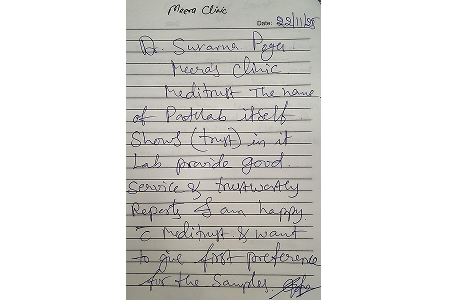 Meera Clinic
Date: 22/11/25
Dr. Suvarna
Meera's Clinic
Meditrust The name
of Pathlab itself
Shows (trust) in it
Lab provide good
Service & trustworthy
Reports I am happy
c̄ Meditrust & want
to give first preference
for the Samples.